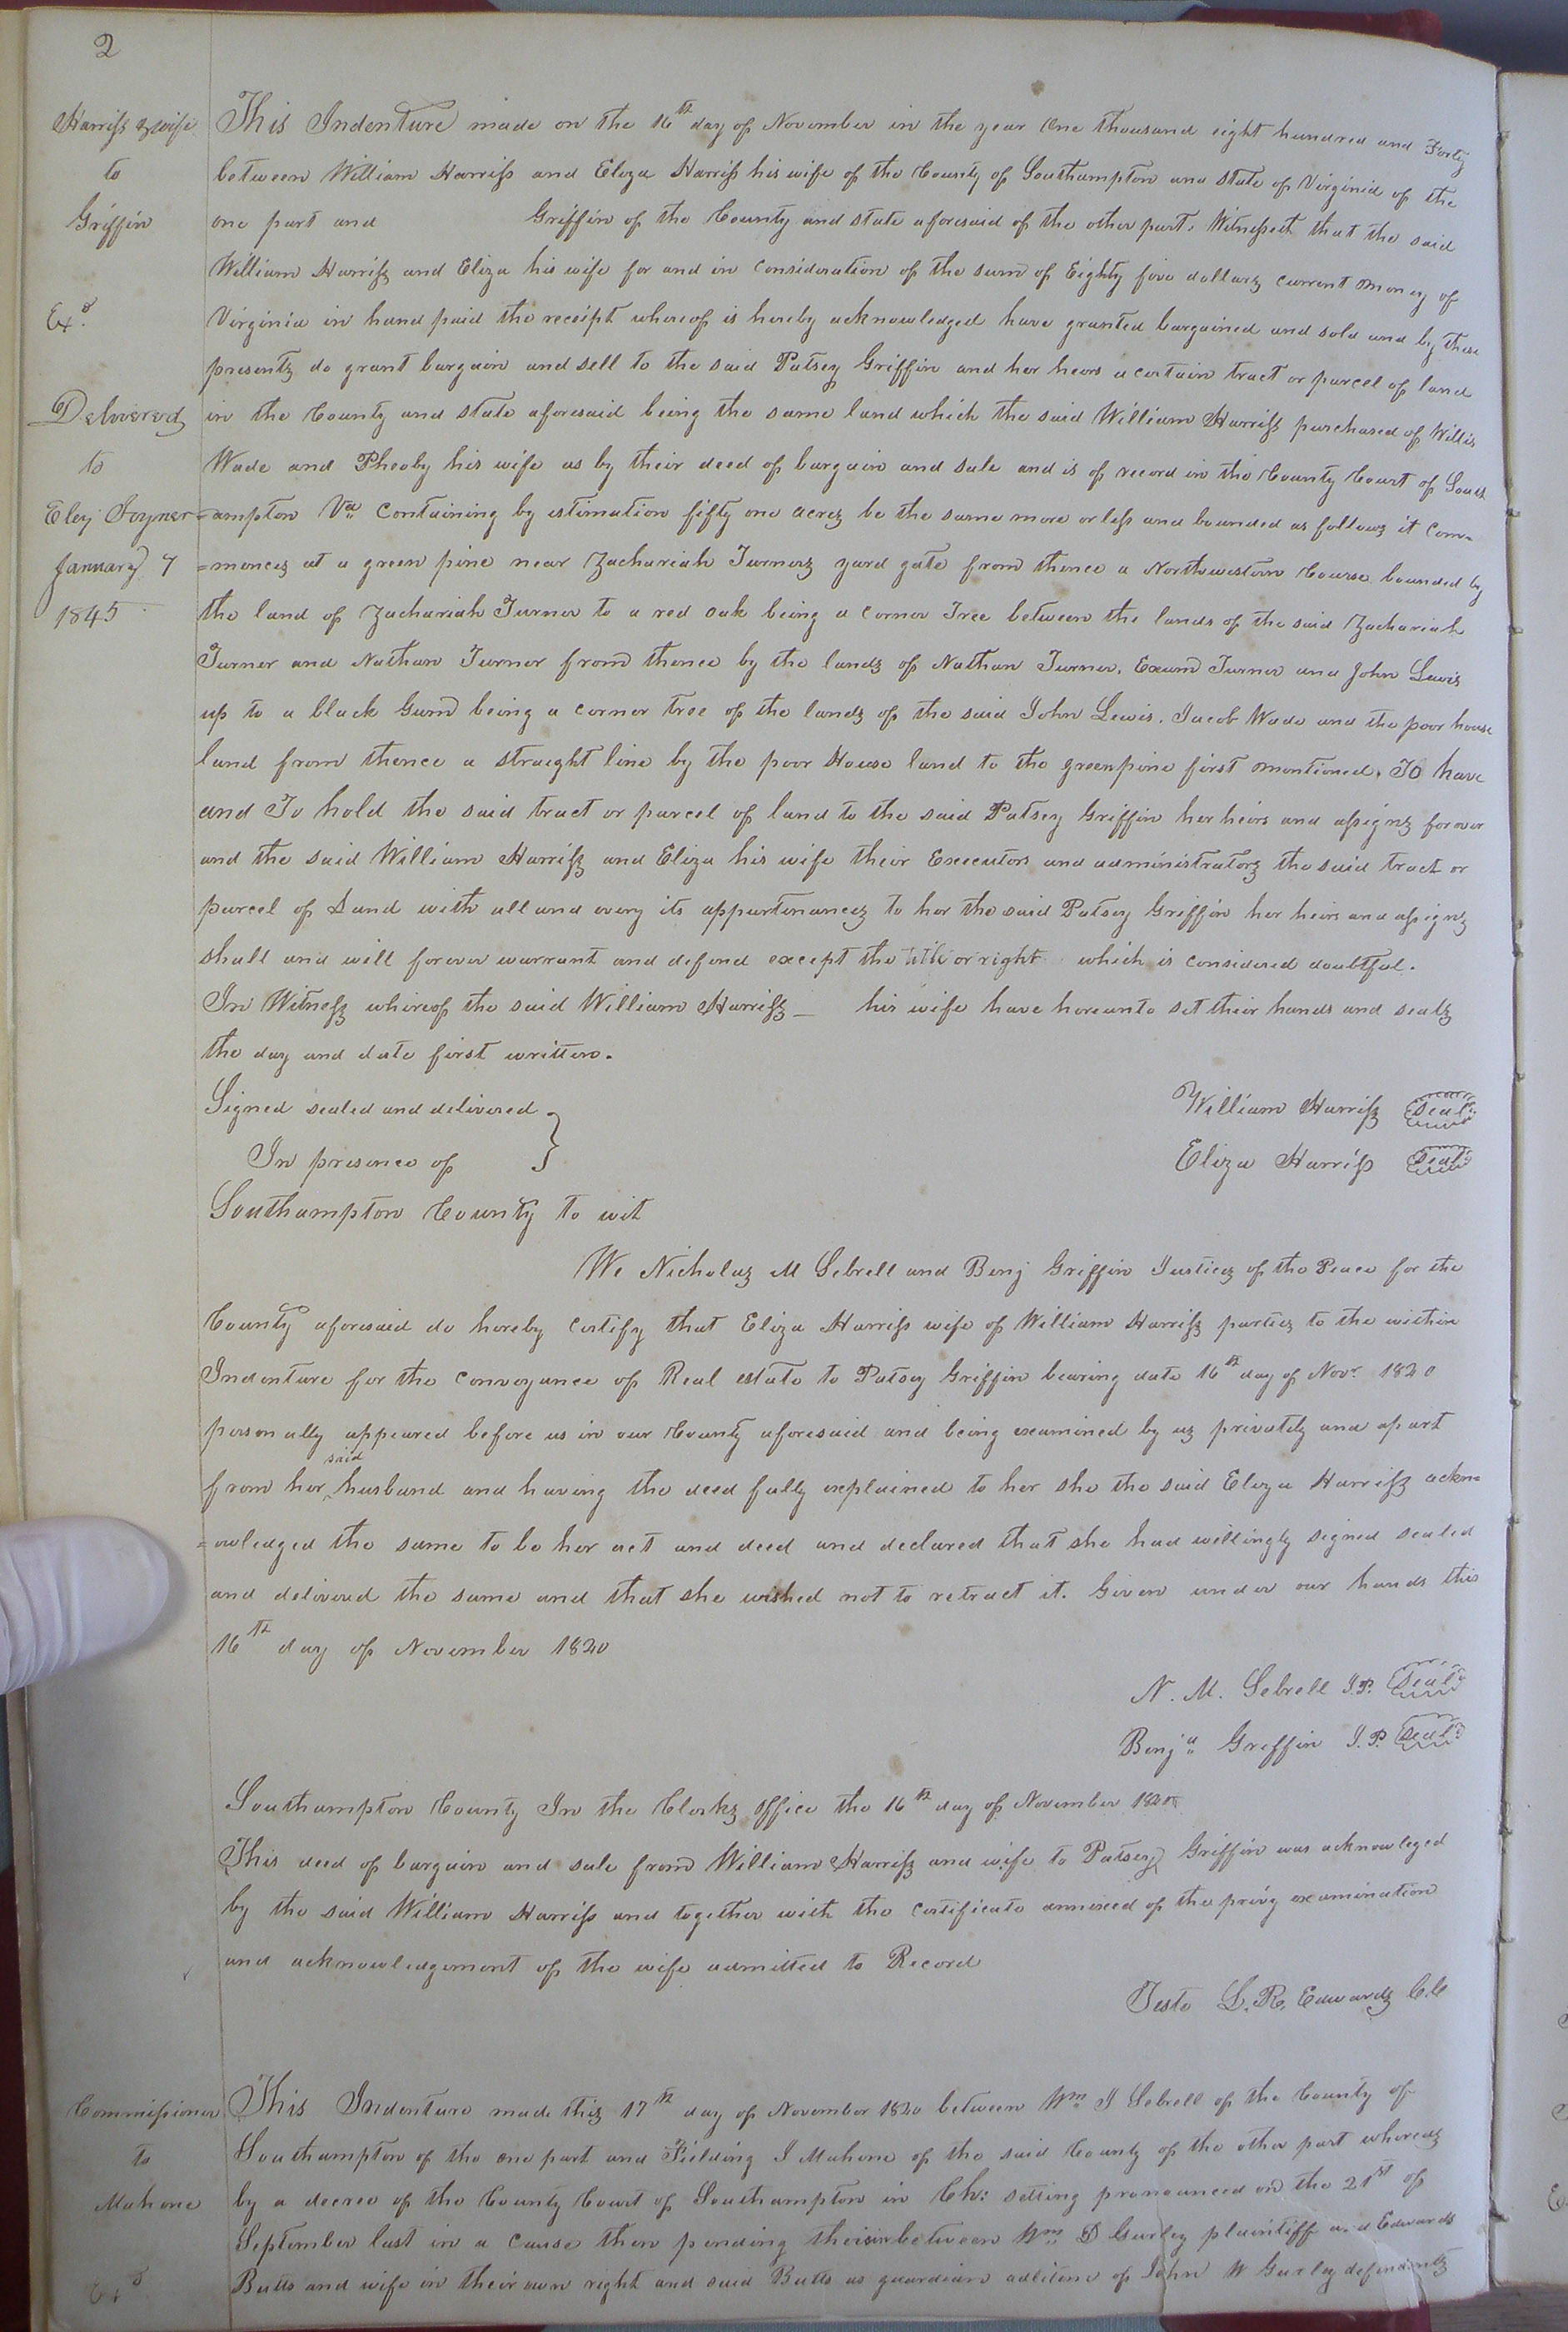 2
Harriss & wife
to
Griffin
Exd.
Delivered
to
Eley Joyner
January 7
1845
This Indenture made on the 16th day of November in the year One thousand eight hundred and Forty
between William Harriss and Eliza Harriss his wife of the County of Southampton and State of Virginia of the
one part and Griffin of the County and state aforesaid of the other part. Witnesseth that the said
William Harriss and Eliza his wife for and in consideration of the sum of Eighty five dollars current money of
Virginia in hand paid the receipt whereof is hereby acknowledged have granted bargained and sold and by these
presents do grant bargain and sell to the said Patsey Griffin and her heirs a certain tract or parcel of land
in the County and state aforesaid being the same land which the said William Harriss purchased of Willis
Wade and Pheoby his wife as by their deed of bargain and sale and is of record in the County Court of South
=ampton Va containing by estimation fifty one acres be the same more or less and bounded as follows it com=
=mences at a green pine near Zachariah Turners yard gate from thence a Northwestern Course bounded by
the land of Zachariah Turner to a red oak being a corner Tree between the lands of the said Zachariah
Turner and Nathan Turner from thence by the lands of Nathan Turner, Exum Turner and John Lewis
up to a black Gum being a corner tree of the lands of the said John Lewis, Jacob Wade and the poor house
land from thence a straight line by the poor House land to the green pine first mentioned. To have
and To hold the said tract or parcel of land to the said Patsey Griffin her heirs and assigns forever
and the said William Harriss and Eliza his wife their Executors and administrators the said tract or
parcel of Land with all and every its appurtenances to her the said Patsey Griffin her heirs and assigns
shall and will forever warrant and defend except the title or right which is considered doubtful.
In Witness whereof the said William Harriss _ his wife have hereunto set their hands and seals
the day and date first written.
Signed sealed and delivered
In presence of }
William Harriss Seal
Eliza Harriss Seal
Southampton County to wit
We Nicholas M Sebrell and Benj Griffin Justices of the Peace for the
County aforesaid do hereby certify that Eliza Harriss wife of William Harriss parties to the within
Indenture for the conveyance of Real estate to Patsey Griffin bearing date 16th day of Novr 1840
personally appeared before us in our County aforesaid and being examined by us privately and apart
from her said husband and having the deed fully explained to her she the said Eliza Harriss ackn=
=owledged the same to be her act and deed and declared that she had willingly signed sealed
and delivered the same and that she wished not to retract it. Given under our hands this
16th day of November 1840
N. M. Sebrell J.P. Seal
Benja Griffin J.P. Seal
Southampton County In the Clerks office the 16th day of November 1840
This deed of bargain and sale from William Harriss and wife to Patsey Griffin was acknowleged
by the said William Harriss and together with the certificate annexed of the privy examination
and acknowledgement of the wife admitted to Record
Teste L. R. Edwards C.C
Commissioner
to
Mahone
Exd
This Indenture made this 17th day of November 1840 between Wm J Sebrell of the County of
Southampton of the one part and Fielding J Mahone of the said County of the other part whereas
by a decree of the County Court of Southampton in Ch: setting pronounced on the 21st of
September last in a cause then pending therein between Wm D Gurley plaintiff and Edwards
Butts and wife in their own right and said Butts as guardian adlitem of John W Gurley defendants